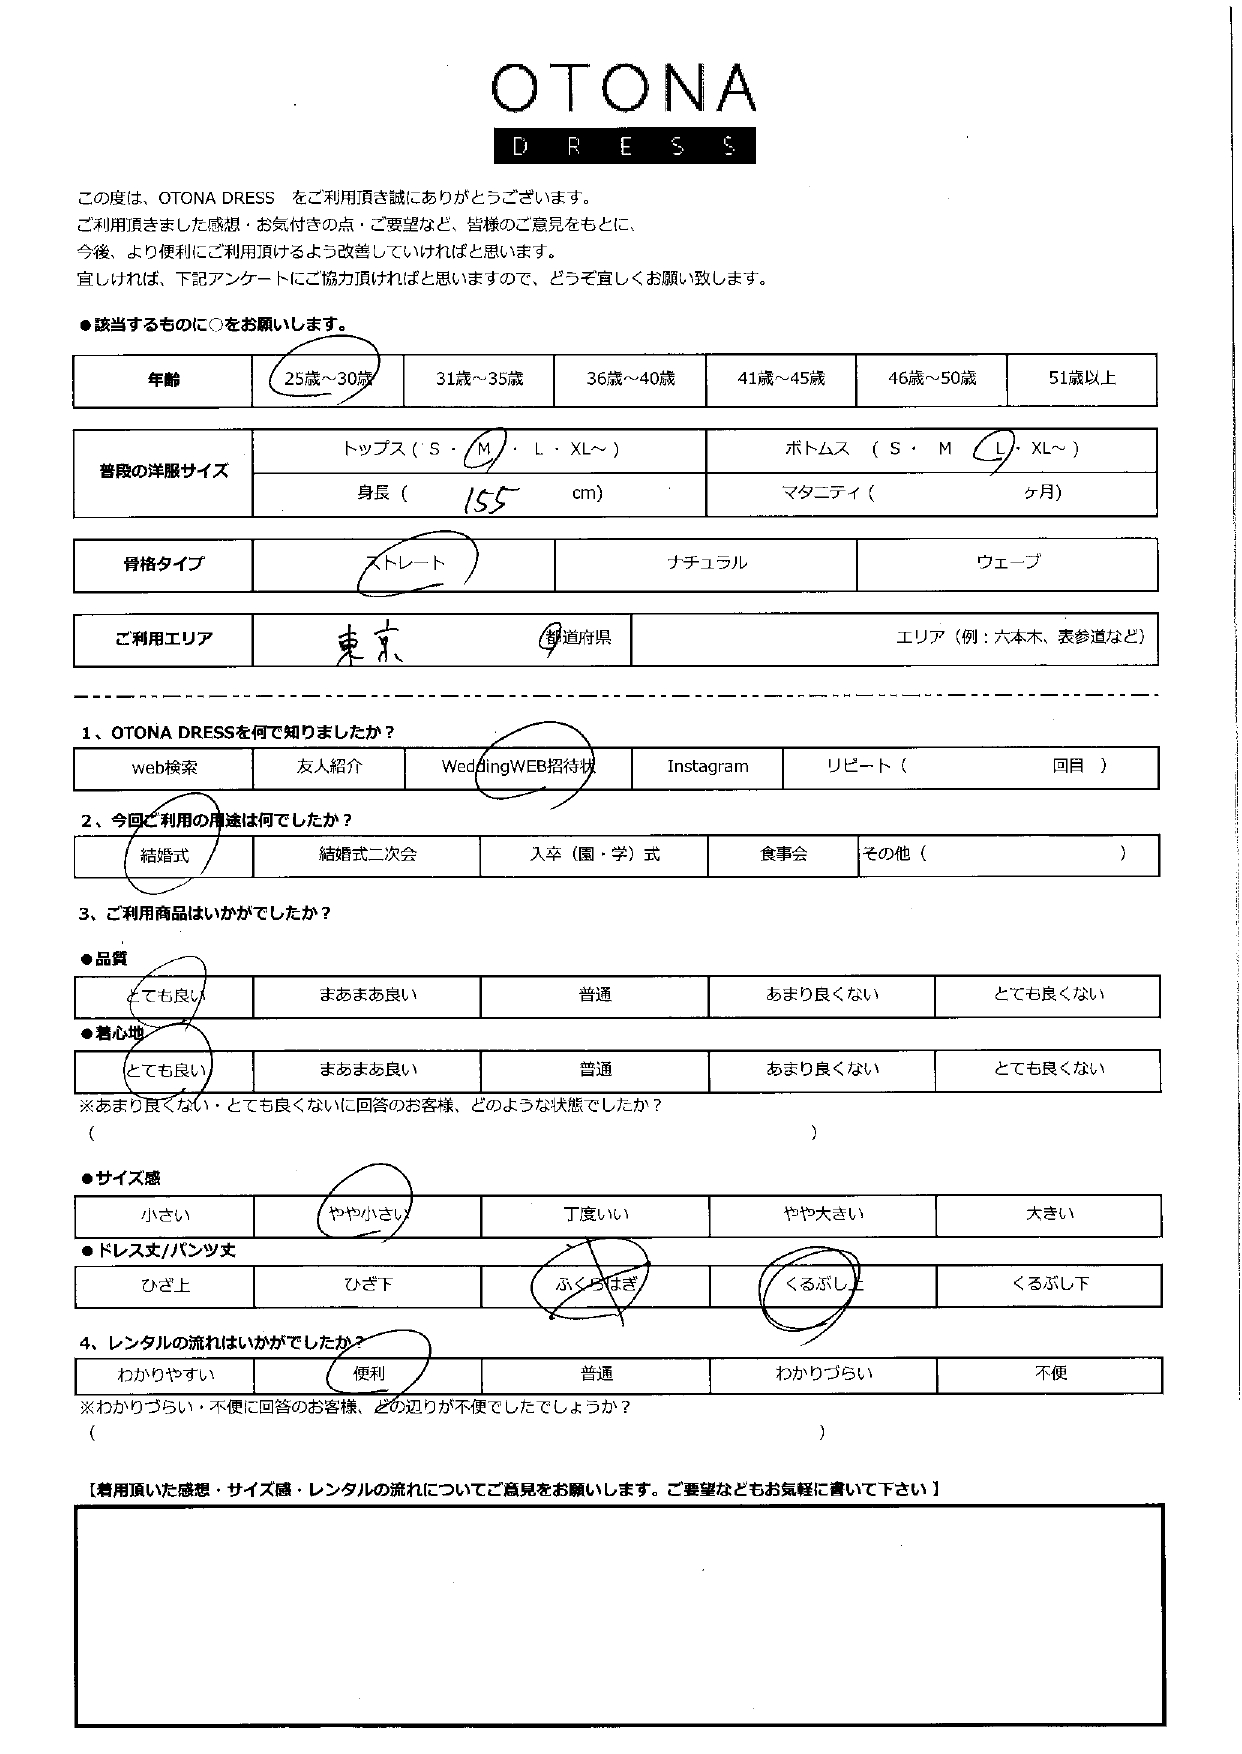 OTONA
DRESS
この度は、OTONA DRESS　をご利用頂き誠にありがとうございます。
ご利用頂きました感想・お気付きの点・ご要望など、皆様のご意見をもとに、
今後、より便利にご利用頂けるよう改善していければと思います。
宜しければ、下記アンケートにご協力頂ければと思いますので、どうぞ宜しくお願い致します。
●該当するものに○をお願いします。
年齢 25歳～30歳 31歳～35歳 36歳～40歳 41歳～45歳 46歳～50歳 51歳以上
普段の洋服サイズ トップス ( S ・ M ・ L ・ XL～ ) ボトムス ( S ・ M ・ L ・ XL～ )
身長 ( 155 cm) マタニティ ( ヶ月)
骨格タイプ ストレート ナチュラル ウェーブ
ご利用エリア 東京 都道府県 エリア（例：六本木、表参道など）
1、OTONA DRESSを何で知りましたか？
web検索 友人紹介 WeddingWEB招待状 Instagram リピート ( 回目 )
2、今回ご利用の用途は何でしたか？
結婚式 結婚式二次会 入卒（園・学）式 食事会 その他 ( )
3、ご利用商品はいかがでしたか？
●品質
とても良い まあまあ良い 普通 あまり良くない とても良くない
●着心地
とても良い まあまあ良い 普通 あまり良くない とても良くない
※あまり良くない・とても良くないに回答のお客様、どのような状態でしたか？
( )
●サイズ感
小さい やや小さい 丁度いい やや大きい 大きい
●ドレス丈/パンツ丈
ひざ上 ひざ下 ふくらはぎ くるぶし上 くるぶし下
4、レンタルの流れはいかがでしたか？
わかりやすい 便利 普通 わかりづらい 不便
※わかりづらい・不便に回答のお客様、どの辺りが不便でしたでしょうか？
( )
【着用頂いた感想・サイズ感・レンタルの流れについてご意見をお願いします。ご要望などもお気軽に書いて下さい 】